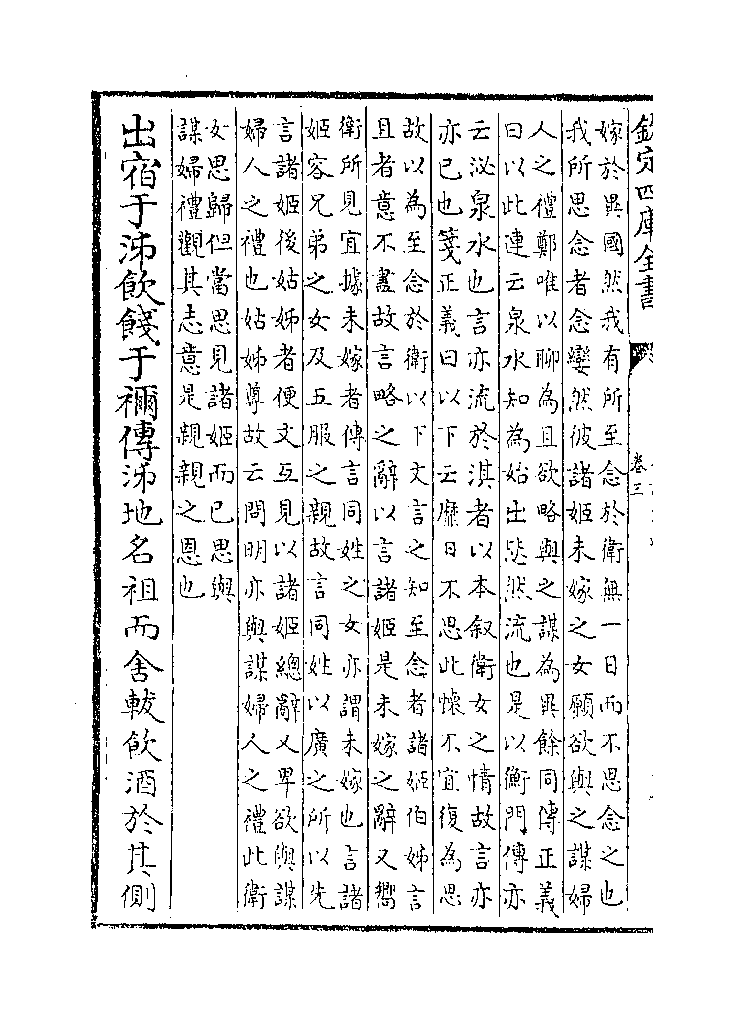 欽定四庫全書
卷三
嫁於異國然我有所至念於衛無一日而不思念之也
我所思念者念孌然彼諸姬未嫁之女願欲與之謀婦
人之禮鄭唯以聊為且欲略與之謀為異餘同傳正義
曰以此連云泉水知為始出毖然流也是以衡門傳亦
云泌泉水也言亦流於淇者以本叙衛女之情故言亦
亦已也箋正義曰以下云靡日不思此懷不宜復為思
故以為至念於衛以下文言之知至念者諸姬伯姊言
且者意不盡故言略之辭以言諸姬是未嫁之辭又嚮
衛所見宜據未嫁者傳言同姓之女亦謂未嫁也言諸
姬容兄弟之女及五服之親故言同姓以廣之所以先
言諸姬後姑姊者便文互見以諸姬總辭又卑欲與謀
婦人之禮也姑姊尊故云問明亦與謀婦人之禮此衛
女思歸但當思見諸姬而已思與
謀婦禮觀其志意是親親之恩也
出宿于泲飲餞于禰傳泲地名祖而舍軷飲酒於其側